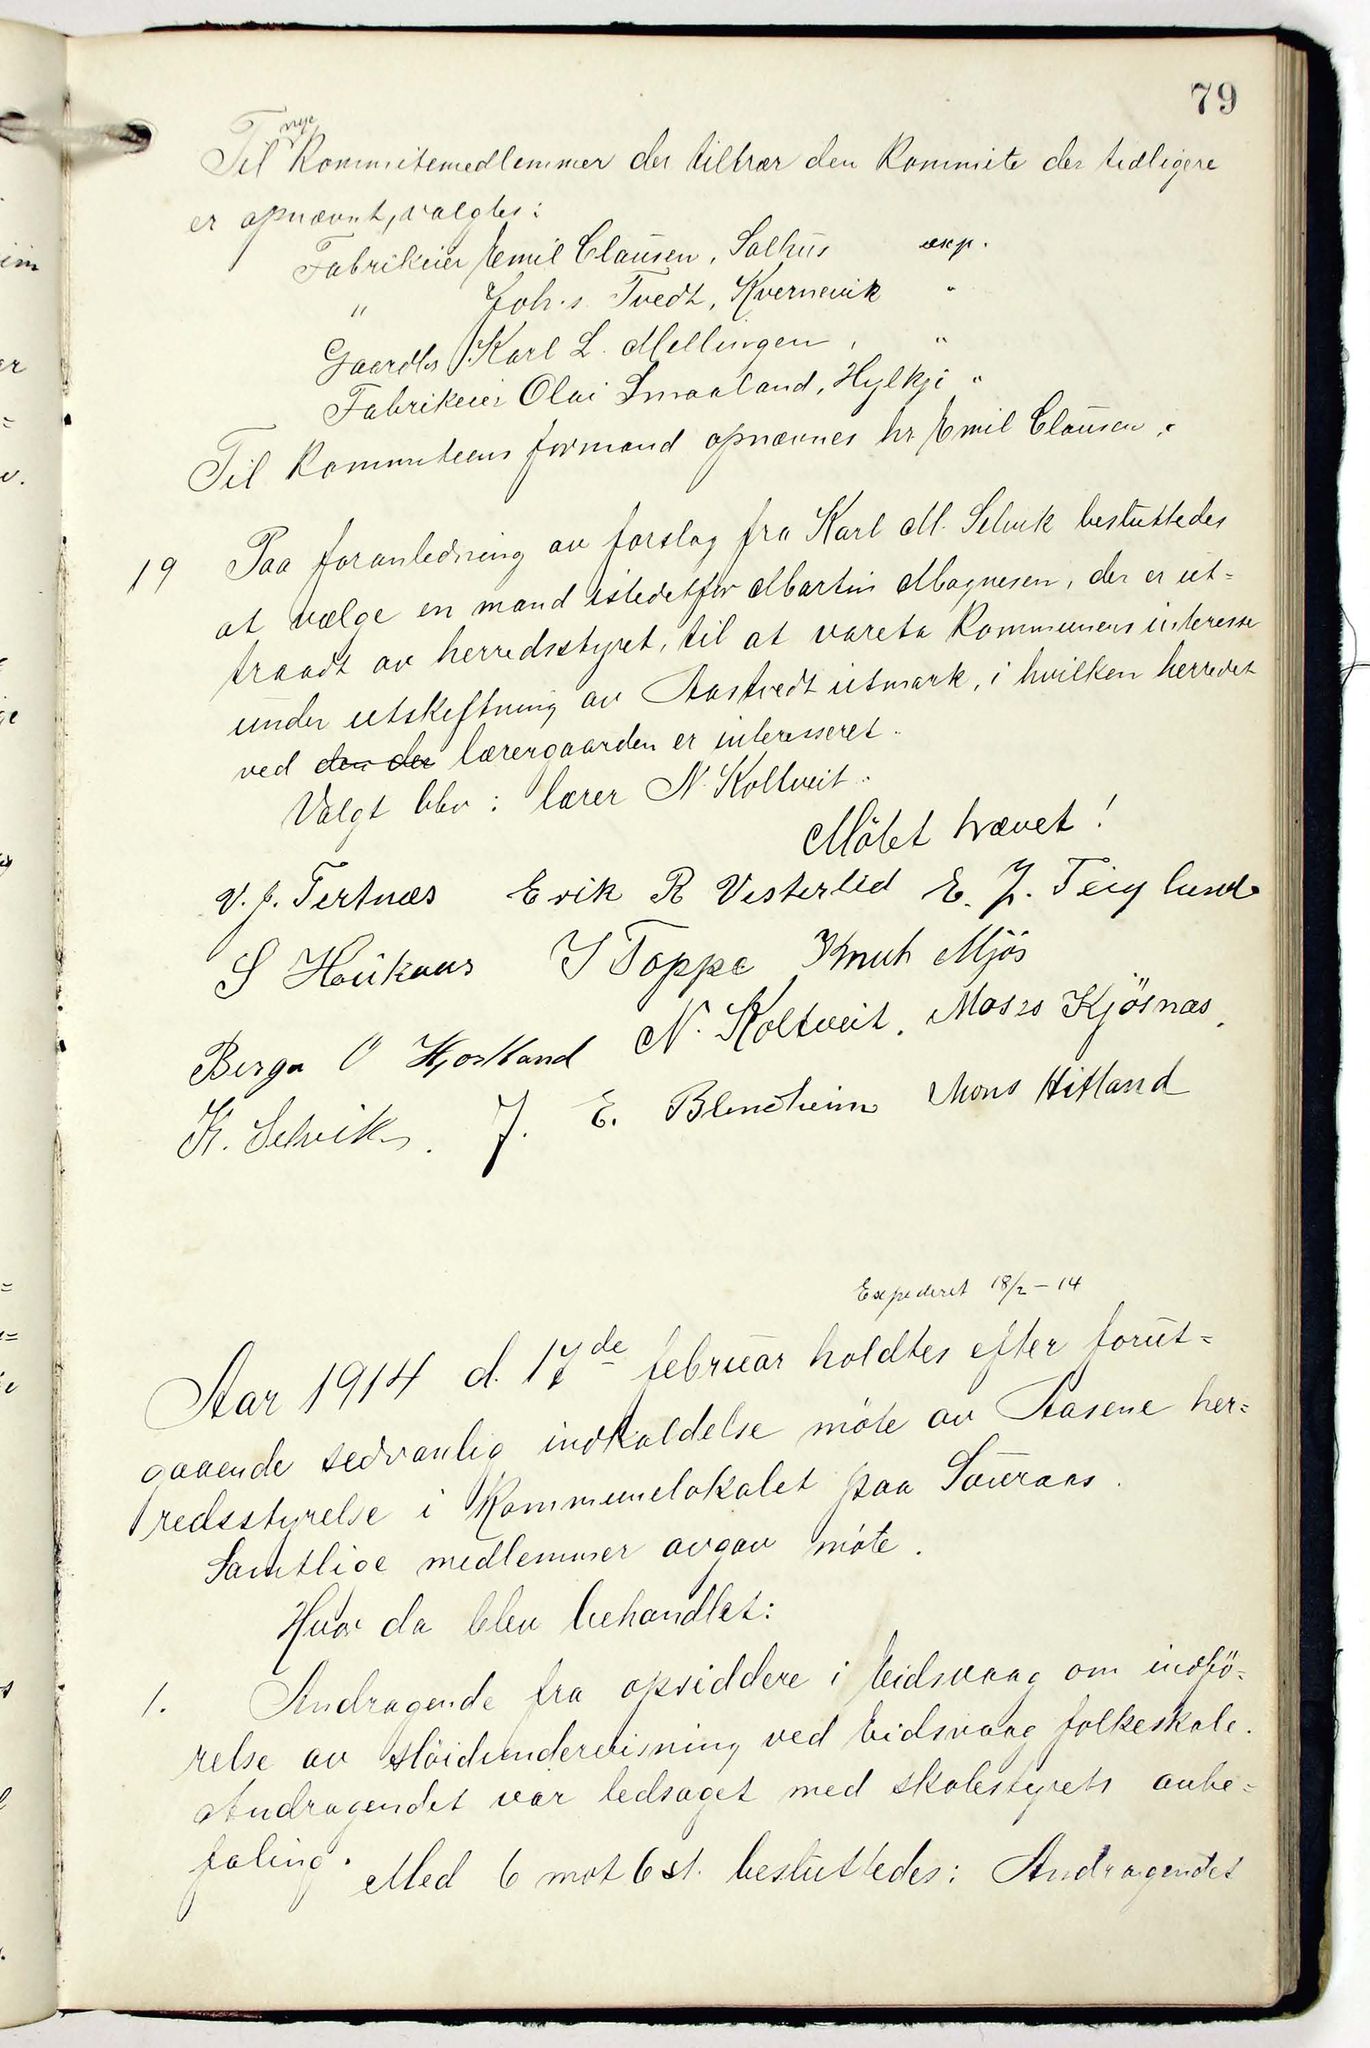 79
Til nye kommitemedlemmer der tiltrær den kommite der tidligere
er opnævnt, valgtes:
Fabrikeier Emil Clausen, Salhus exp.
" Joh.s. Tvedt, Kvernevik "
Gaardbr. Karl L. Mellingen, "
Fabrikeier Olai Smaaland, Hylkje "
Til kommiteens formand opnævnes hr Emil Clausen.
19 Paa foranledning av forslag fra Karl M. Selvik besluttedes
at vælge en mand istedetfor Martin Magnesen, der er ut=
traadt av herredsstyret, til at vareta kommunens interesse
under utskiftning av Aastvedt utmark, i hvilken herredet
ved den der lærergaarden er interesseret.
Valgt blev: lærer N. Koltveit.
Mötet hævet!
V. J. Tertnæs Erik R Vesterlid E. J. Teiglund
S Haukaas J Toppe Knut Mjös
Berge O Hjortland N. Koltveit. Moses Kjösnæs.
K. Selvik. J. E. Blindheim Mons Hitland
Expederet 18/2 - 14
Aar 1914 d. 17de februar holdtes efter forut=
gaaende sedvanlig indkaldelse möte av Aasene her=
redsstyrelse i kommunelokalet paa Sauraas.
Samtlige medlemmer avgav möte.
Hvor da blev behandlet:
1. Andragende fra opsiddere i Eidsvaag om indfö=
relse av slöidundervisning ved Eidsvaag folkeskole.
Andragendet var ledsaget med skolestyrets anbe=
faling.
Med 6 mot 6 st. besluttedes: Andragendet